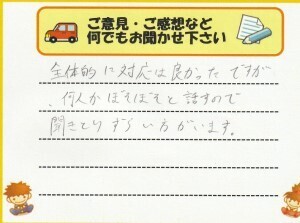 ご意見・ご感想など
何でもお聞かせ下さい
全体的に対応は良かったですが
、何人かぼそぼそと話すので
聞きとりずらい方がいます。